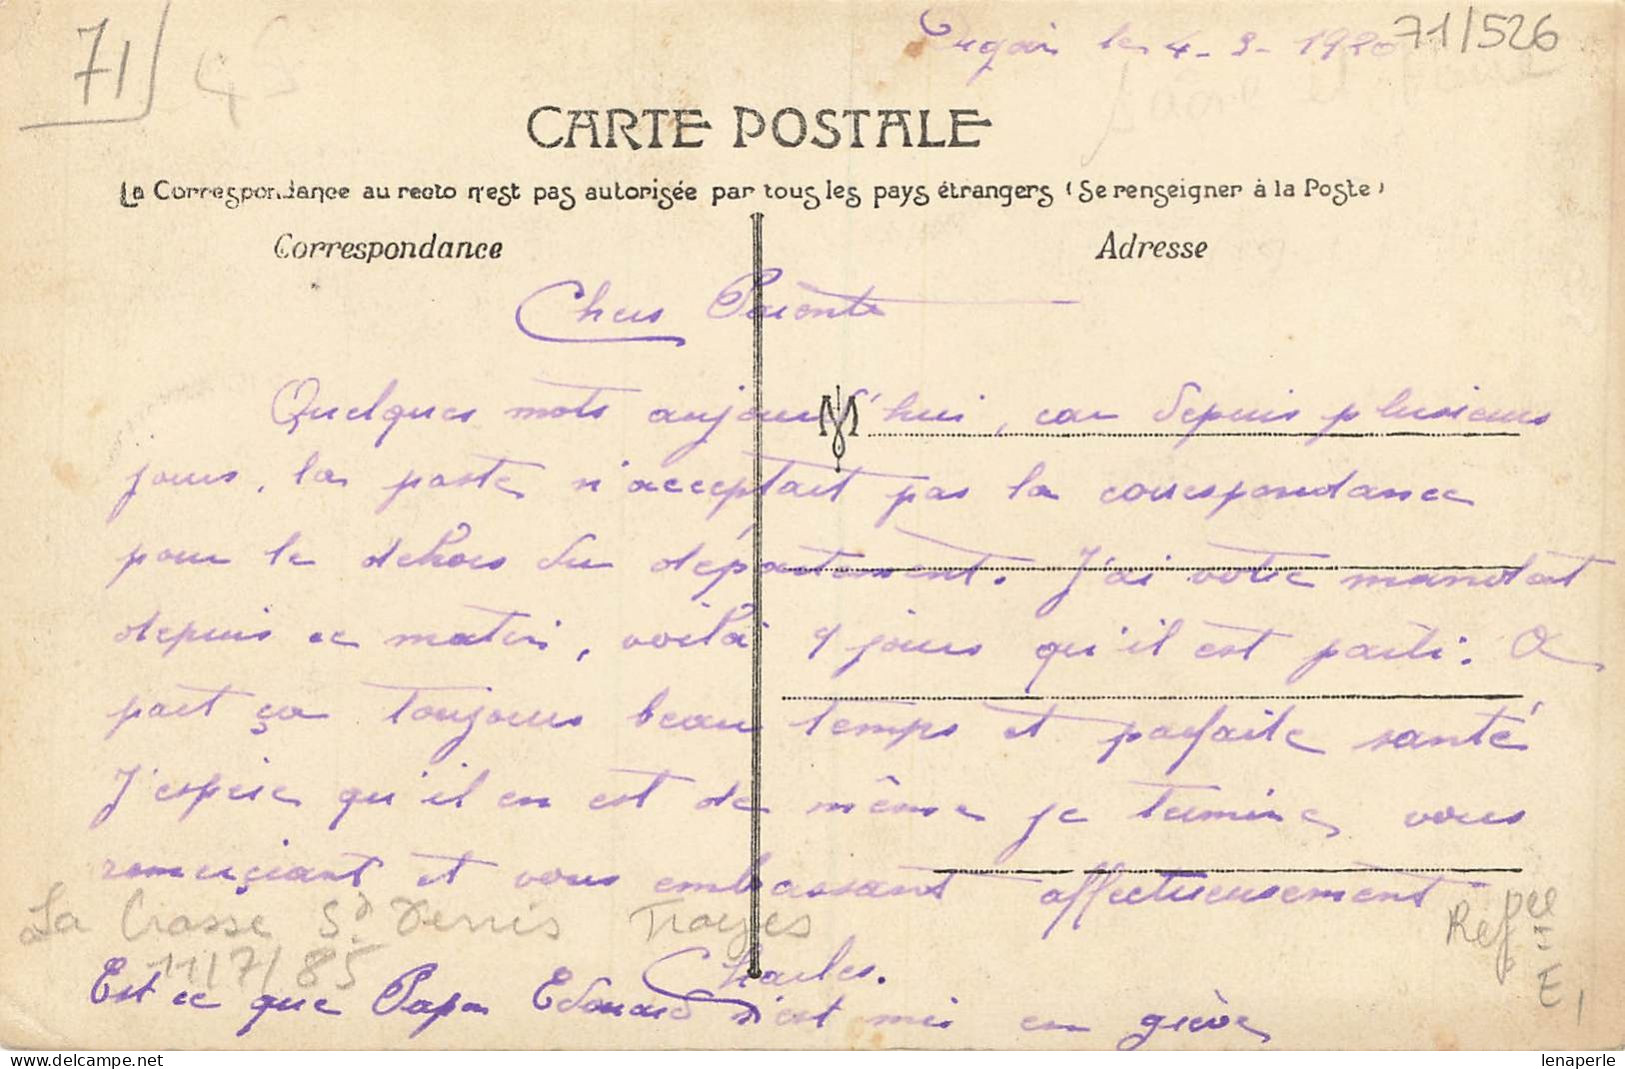 71
71/526
le 4-3-1920
CARTE POSTALE
La Correspondance au recto n'est pas autorisée par tous les pays étrangers (Se renseigner à la Poste)
Correspondance
Adresse
Chers Parents
M
Quelques mots aujourd'hui, car depuis plusieurs
jours, la poste n'acceptait pas la correspondance
pour le dehors du département. J'ai votre mandat
depuis ce matin, voilà 9 jours qu'il est parti. A
part ça toujours beau temps et parfaite santé
J'espère qu'il en est de même je termine vous
remerciant et vous embrassant affectueusement
Charles.
La Crasse St Denis Troyes
11/7/85
Est ce que Papa Edouard s'est mis en grève
lenaperle